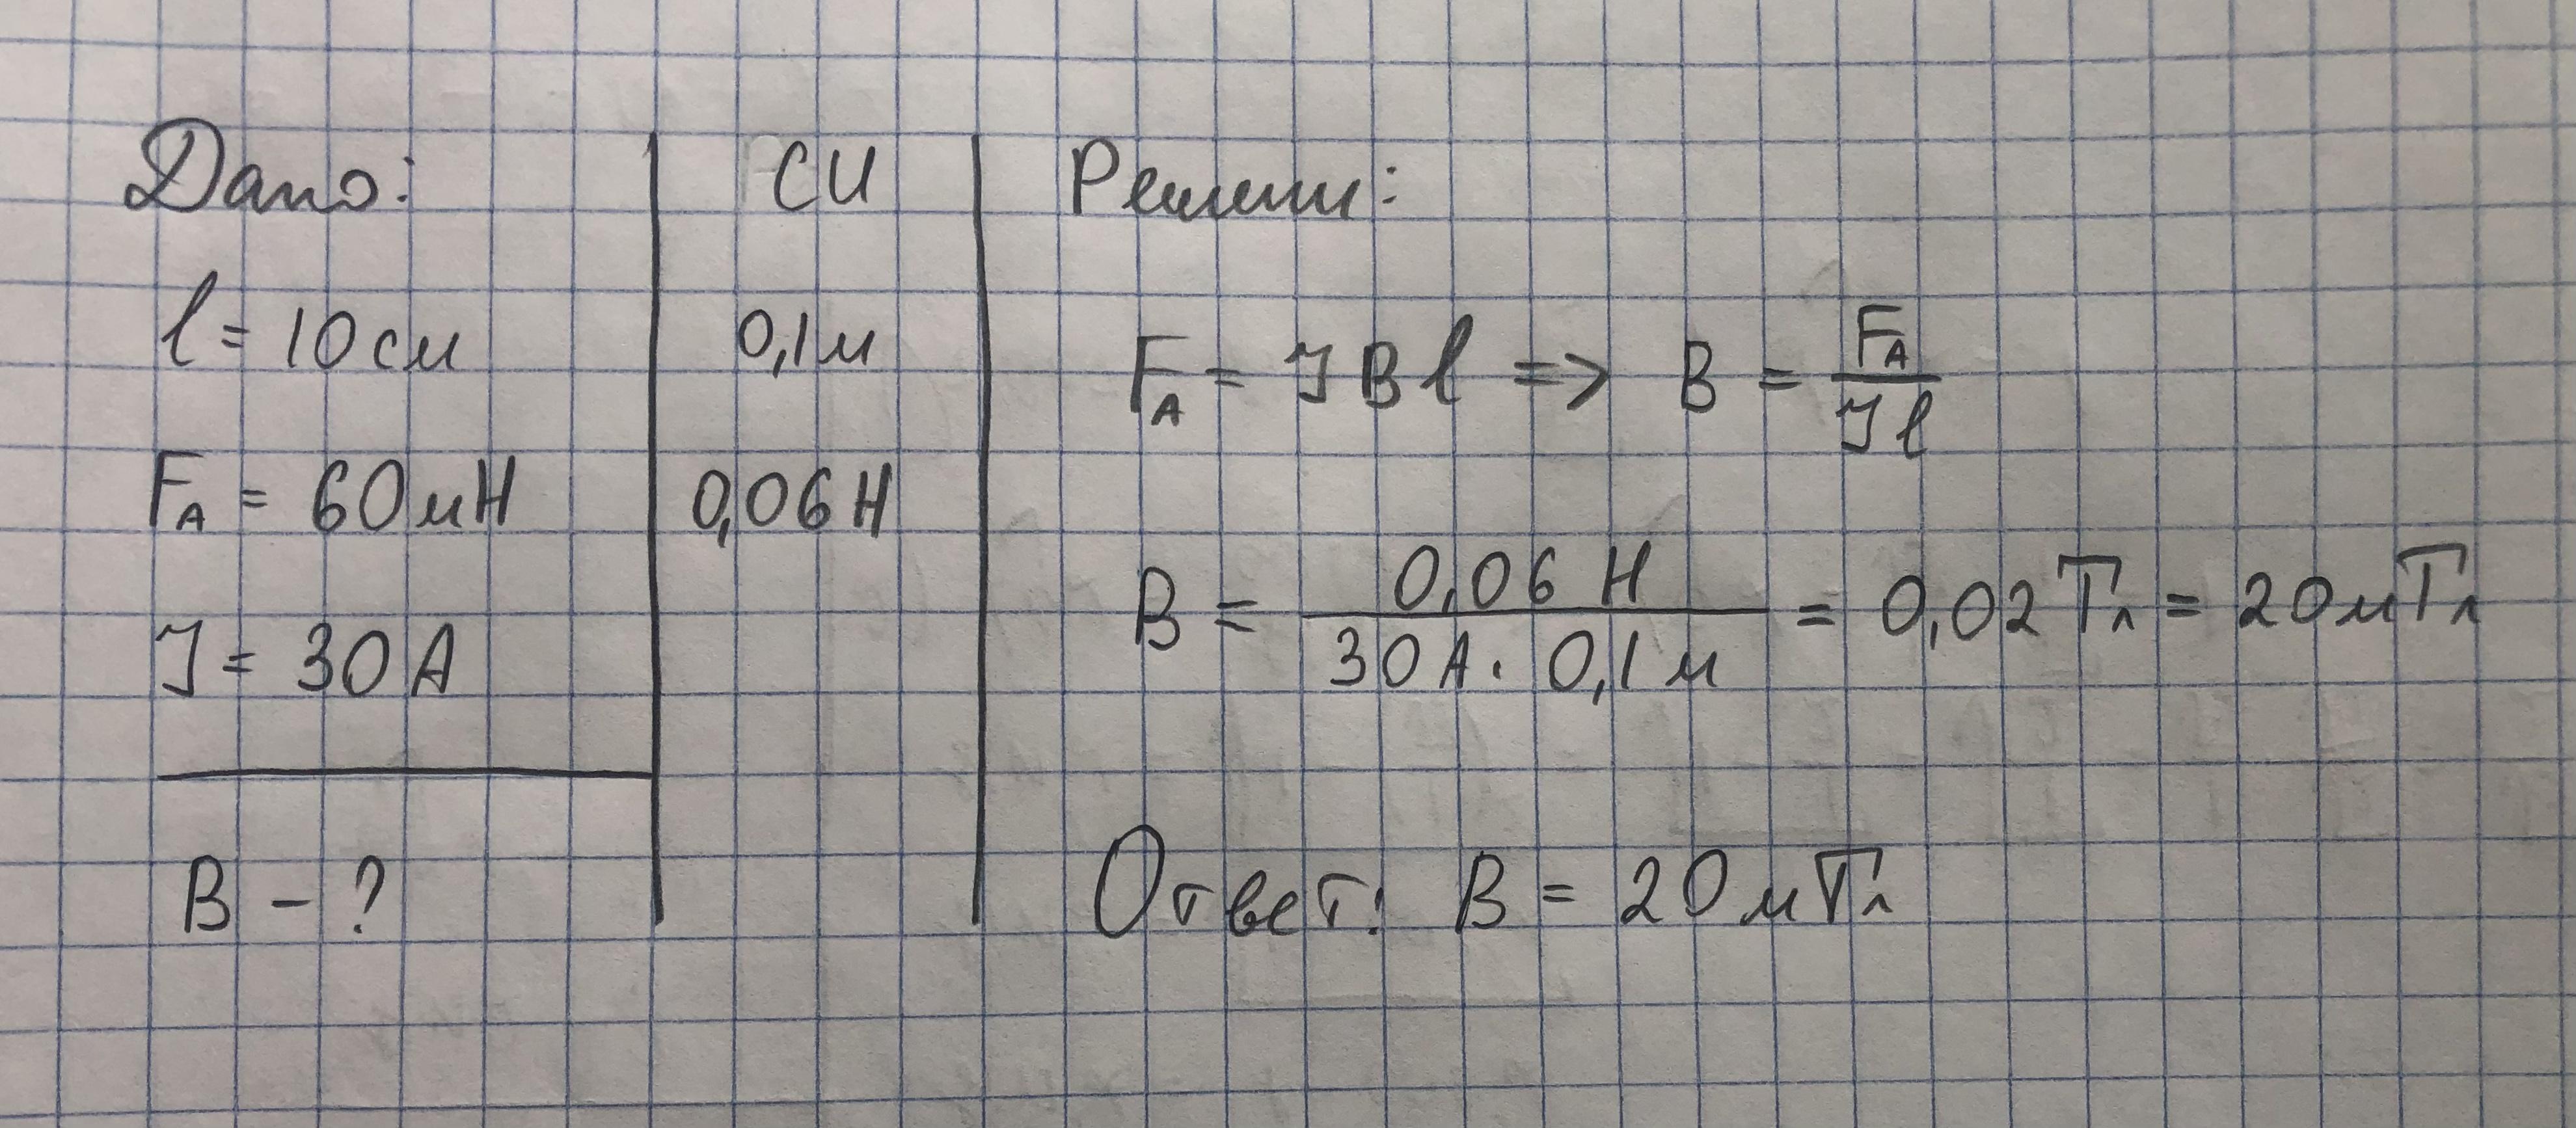 Дано:
l = 10 см
F_A = 60 мН
I = 30 А
B - ?
СИ
0,1 м
0,06 Н
Решение:
F_A = I B l => B = F_A / I l
B = 0,06 Н / 30 А · 0,1 м = 0,02 Тл = 20 мТл
Ответ: B = 20 мТл